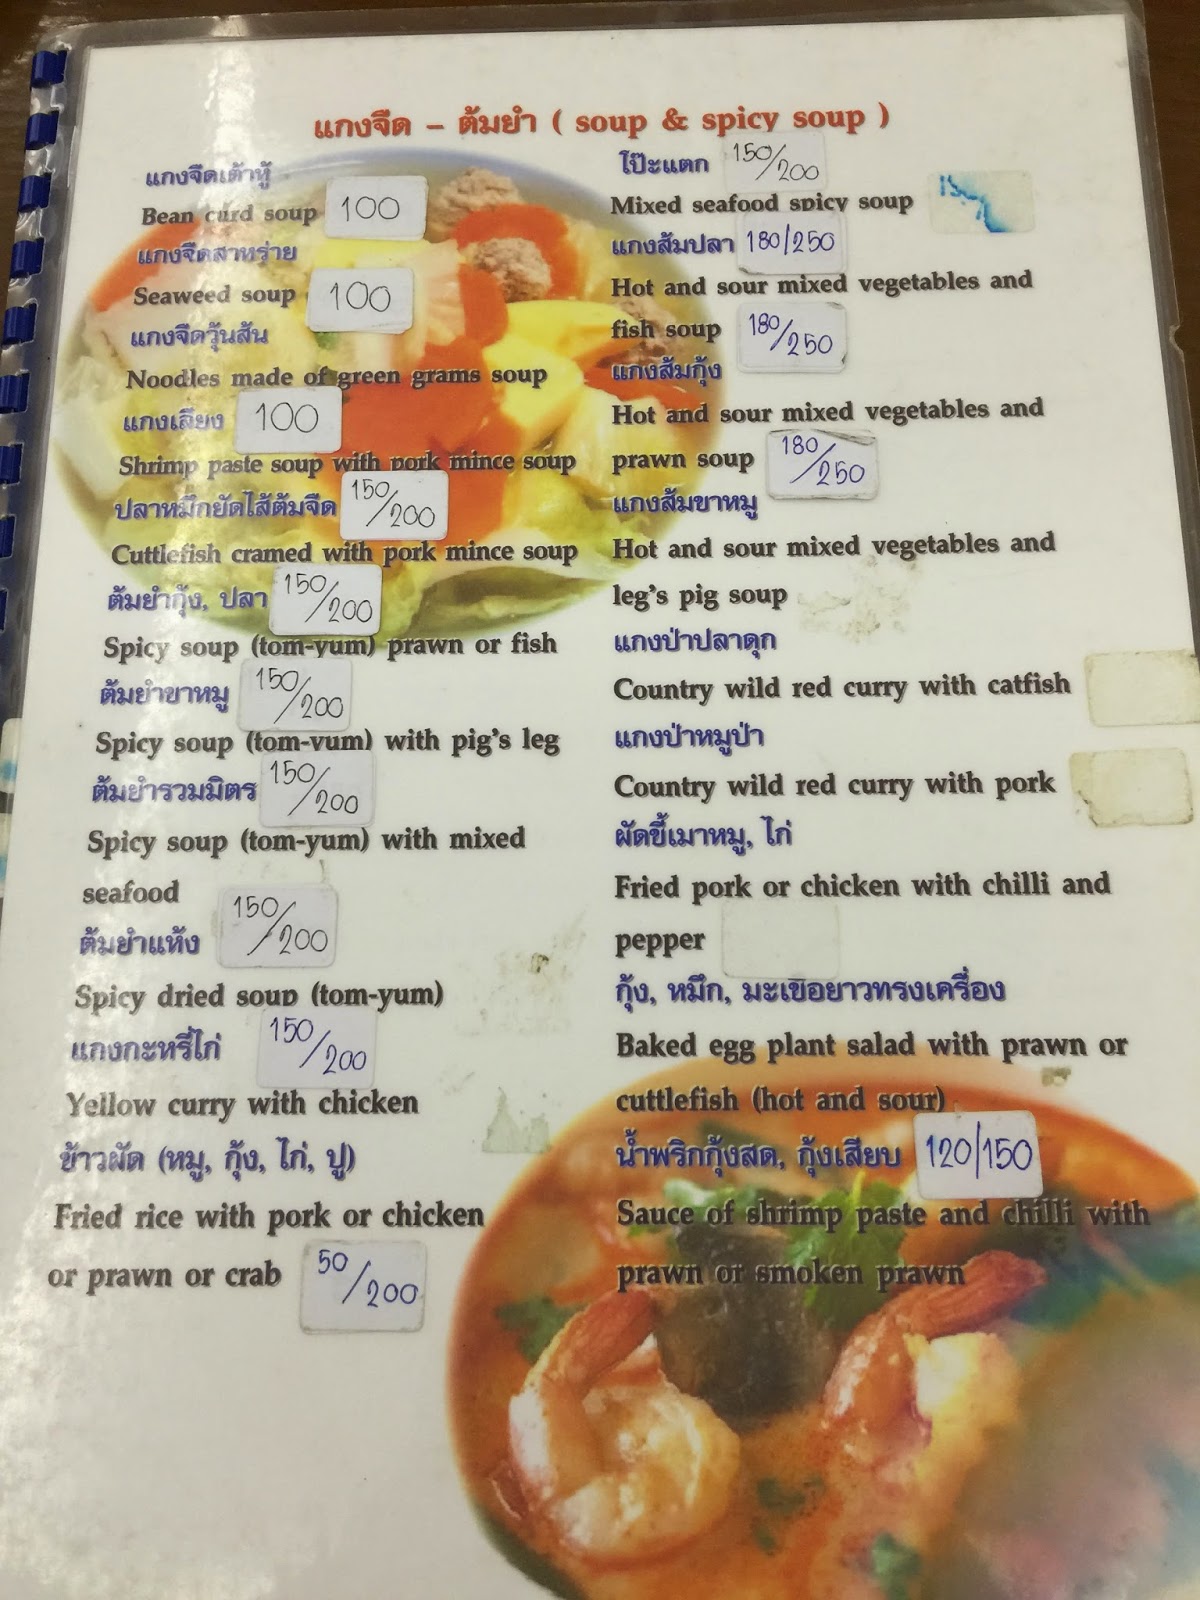 แกงจืด – ต้มยำ ( soup & spicy soup )
แกงจืดเต้าหู้
Bean curd soup 100
แกงจืดสาหร่าย
Seaweed soup 100
แกงจืดวุ้นส้น
Noodles made of green grams soup
แกงเลียง 100
Shrimp paste soup with pork mince soup
ปลาหมึกยัดไส้ต้มจืด 150/200
Cuttlefish cramed with pork mince soup
ต้มยำกุ้ง, ปลา 150/200
Spicy soup (tom-yum) prawn or fish
ต้มยำขาหมู 150/200
Spicy soup (tom-yum) with pig's leg
ต้มยำรวมมิตร 150/200
Spicy soup (tom-yum) with mixed
seafood
ต้มยำแห้ง 150/200
Spicy dried soup (tom-yum)
แกงกะหรี่ไก่ 150/200
Yellow curry with chicken
ข้าวผัด (หมู, กุ้ง, ไก่, ปู)
Fried rice with pork or chicken
or prawn or crab 50/200
โป๊ะแตก 150/200
Mixed seafood spicy soup
แกงส้มปลา 180/250
Hot and sour mixed vegetables and
fish soup 180/250
แกงส้มกุ้ง
Hot and sour mixed vegetables and
prawn soup 180/250
แกงส้มขาหมู
Hot and sour mixed vegetables and
leg's pig soup
แกงป่าปลาดุก
Country wild red curry with catfish
แกงป่าหมูป่า
Country wild red curry with pork
ผัดขี้เมาหมู, ไก่
Fried pork or chicken with chilli and
pepper
กุ้ง, หมึก, มะเขือยาวทรงเครื่อง
Baked egg plant salad with prawn or
cuttlefish (hot and sour)
น้ำพริกกุ้งสด, กุ้งเสียบ 120/150
Sauce of shrimp paste and chilli with
prawn or smoken prawn